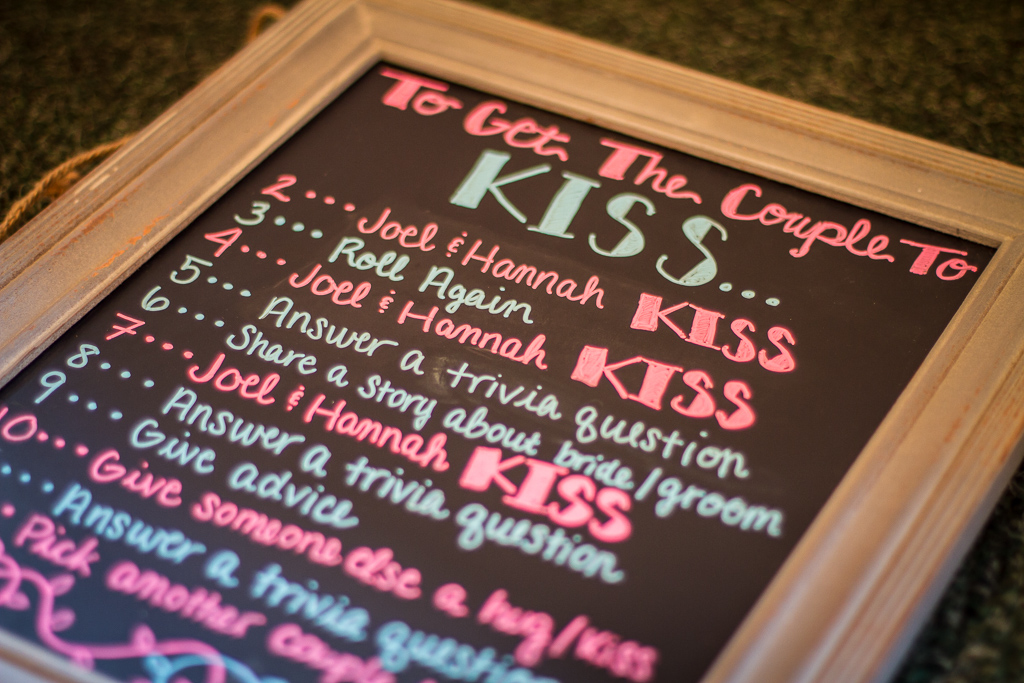 To Get The Couple To
KISS...
2... Joel & Hannah KISS
3.... Roll Again
4... Joel & Hannah KISS
5.... Answer a trivia question
6.... Share a story about bride/groom
7.... Joel & Hannah KISS
8.... Answer a trivia question
9.... Give advice
10.... Give someone else a hug/kiss
Answer a trivia question
Pick another couple